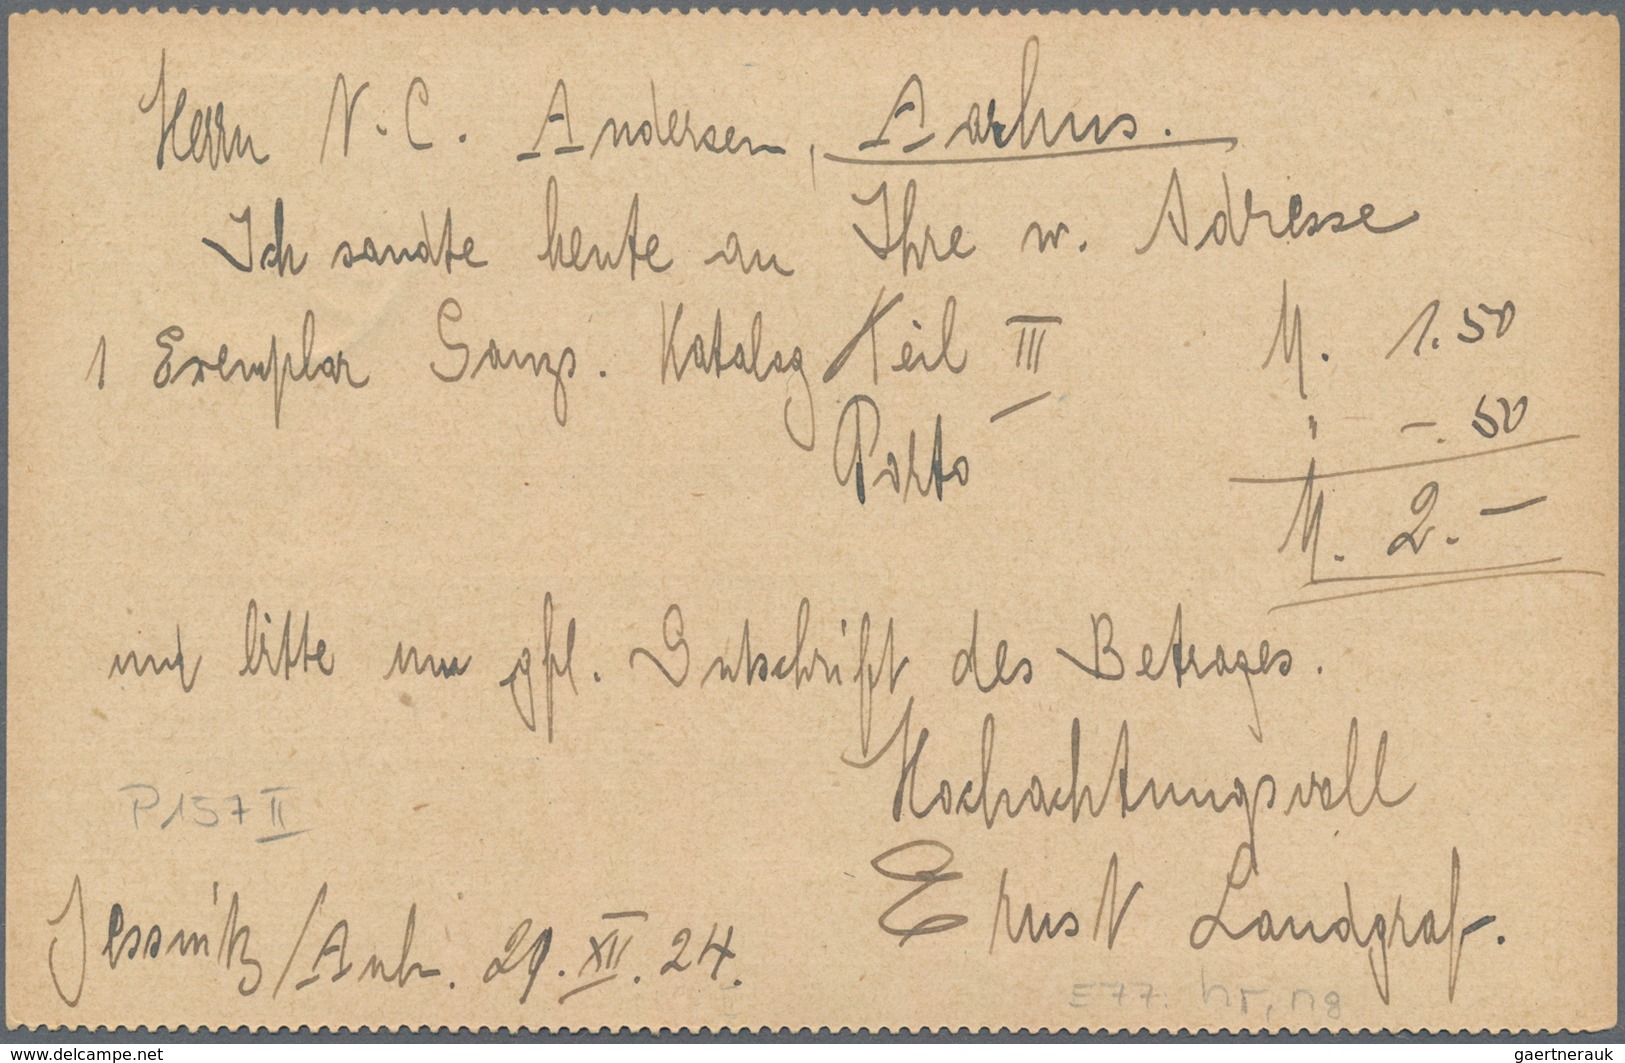 Herrn N. C. Andersen, Aarhus.
Ich sandte heute an Ihre w. Adresse
1 Exemplar Ganzs. Katalog Teil III M. 1.50
Porto " -.50
M. 2.-
und bitte um gfl. Gutschrift des Betrages.
Hochachtungsvoll
P157 II
Ernst Landgraf.
Jessnitz/Anh. 29. XII. 24.
E77.
www.delcampe.net
gaertnerauk